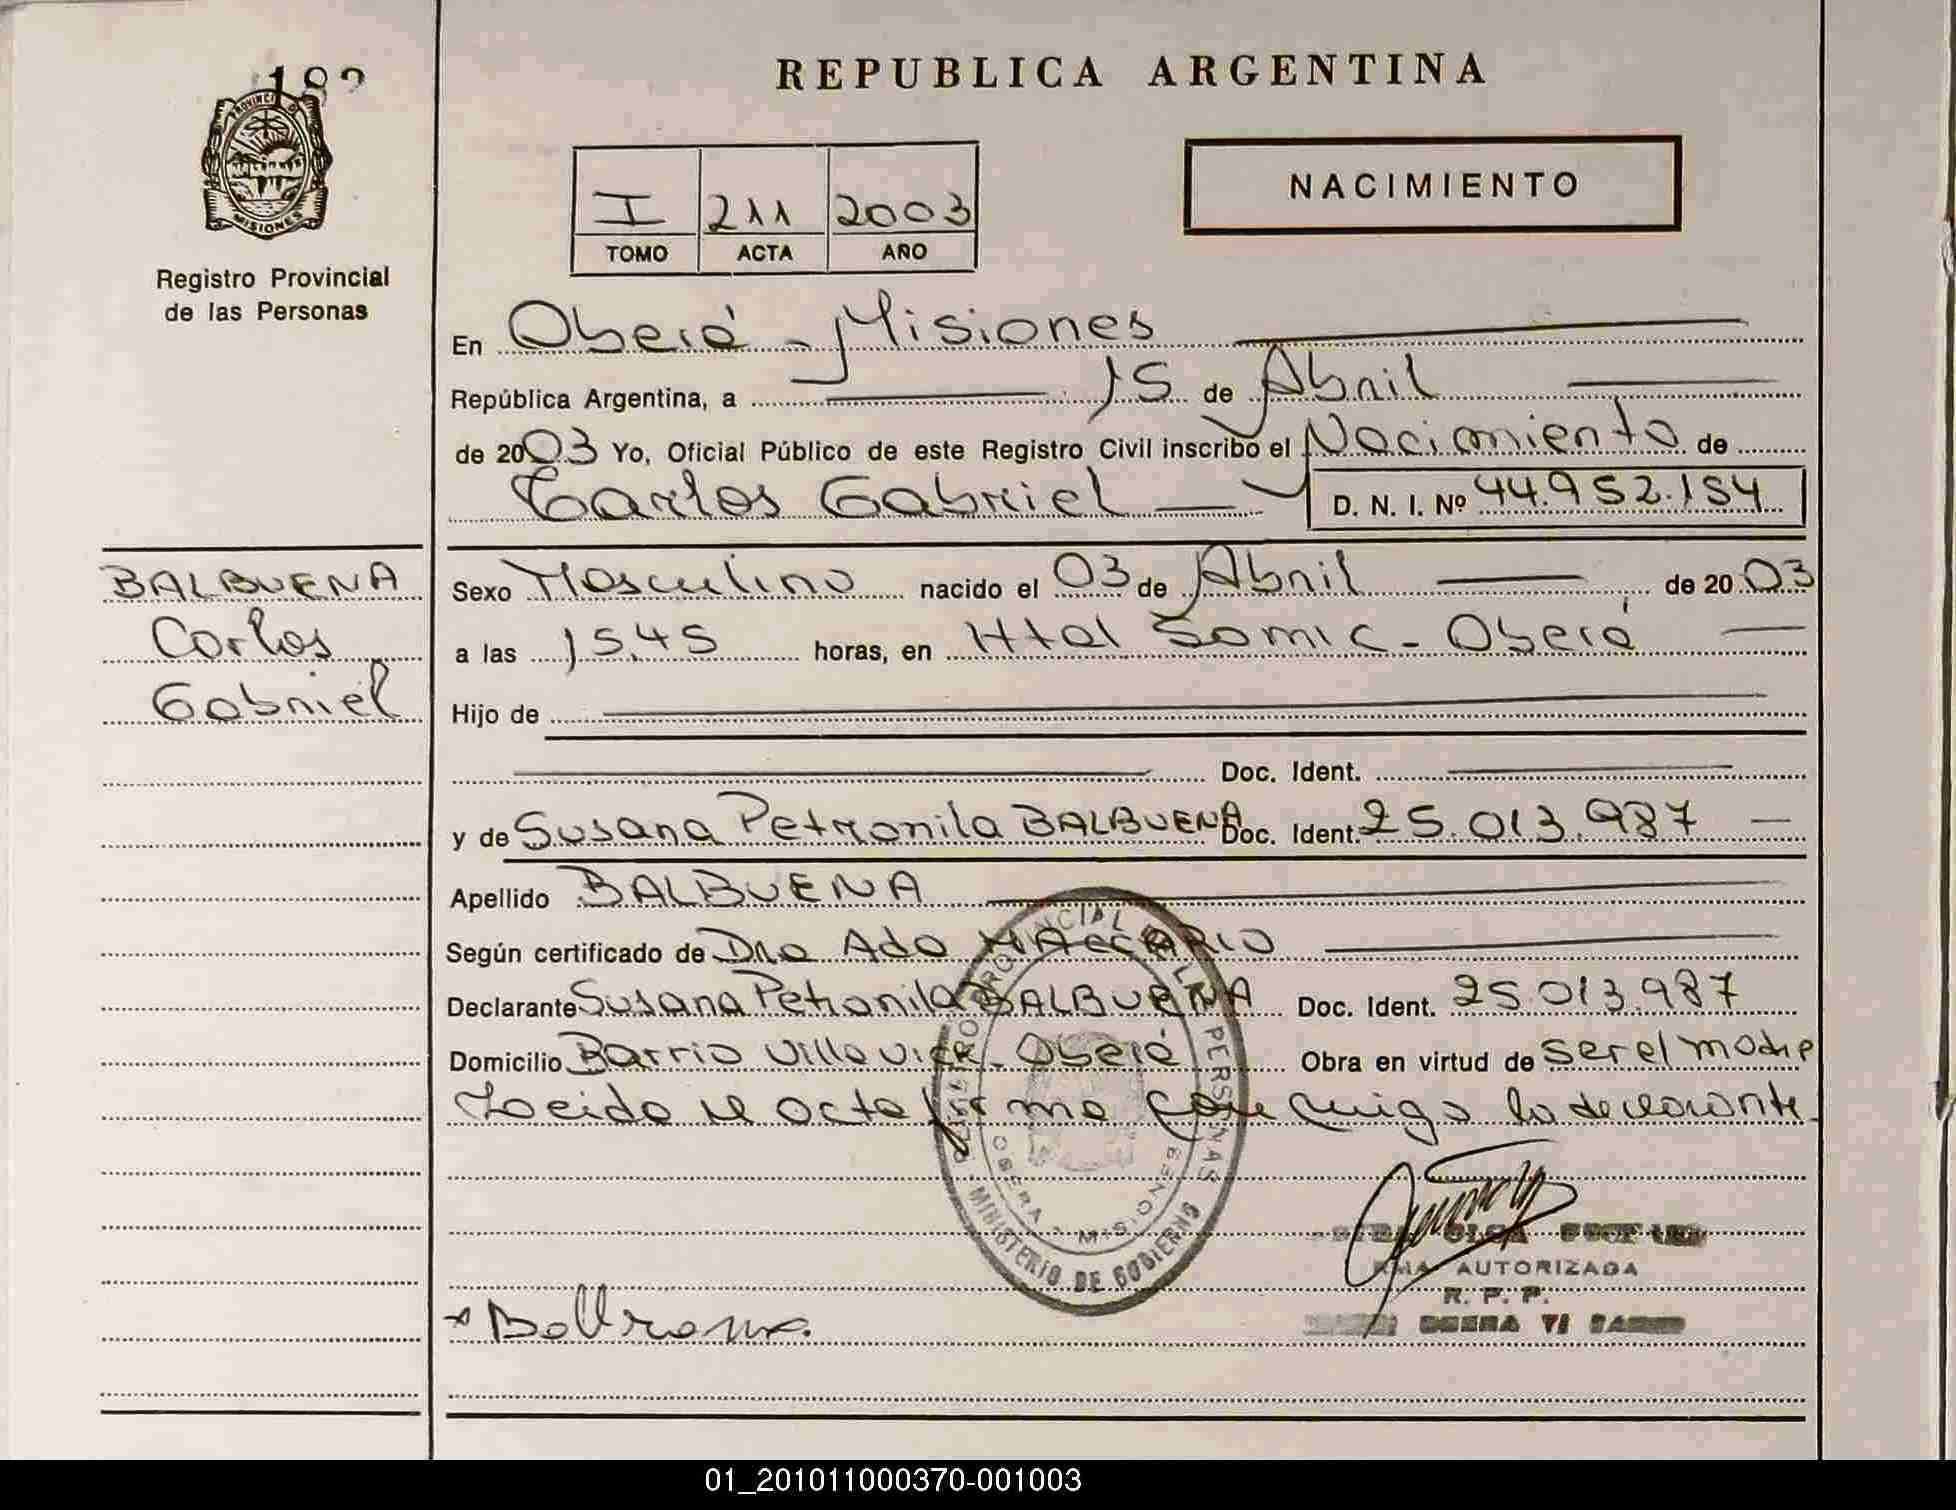 REPUBLICA ARGENTINA
NACIMIENTO
I 211 2003
TOMO ACTA AÑO
PROVINCIA DE
MISIONES
Registro Provincial
de las Personas
En Oberá - Misiones
República Argentina, a 15 de Abril
de 2003 Yo, Oficial Público de este Registro Civil inscribo el Nacimiento de
Carlos Gabriel
D. N. I. Nº 44.952.154
BALBUENA
Carlos
Gabriel
Sexo Masculino nacido el 03 de Abril de 2003
a las 15.45 horas, en Htal Samic - Oberá
Hijo de
Doc. Ident.
y de Susana Petronila BALBUENA Doc. Ident. 25.013.987
Apellido BALBUENA
Según certificado de Dra Ada MACCARIO
Declarante Susana Petronila BALBUENA Doc. Ident. 25.013.987
Domicilio Barrio Villa Vick - Oberá Obra en virtud de ser el madre
Leida el acta firma conmigo la declarante
REGISTRO PROVINCIAL DE LAS PERSONAS
MINISTERIO DE GOBIERNO
OBERA - MISIONES
AUTORIZADA
R. P. P.
01_201011000370-001003